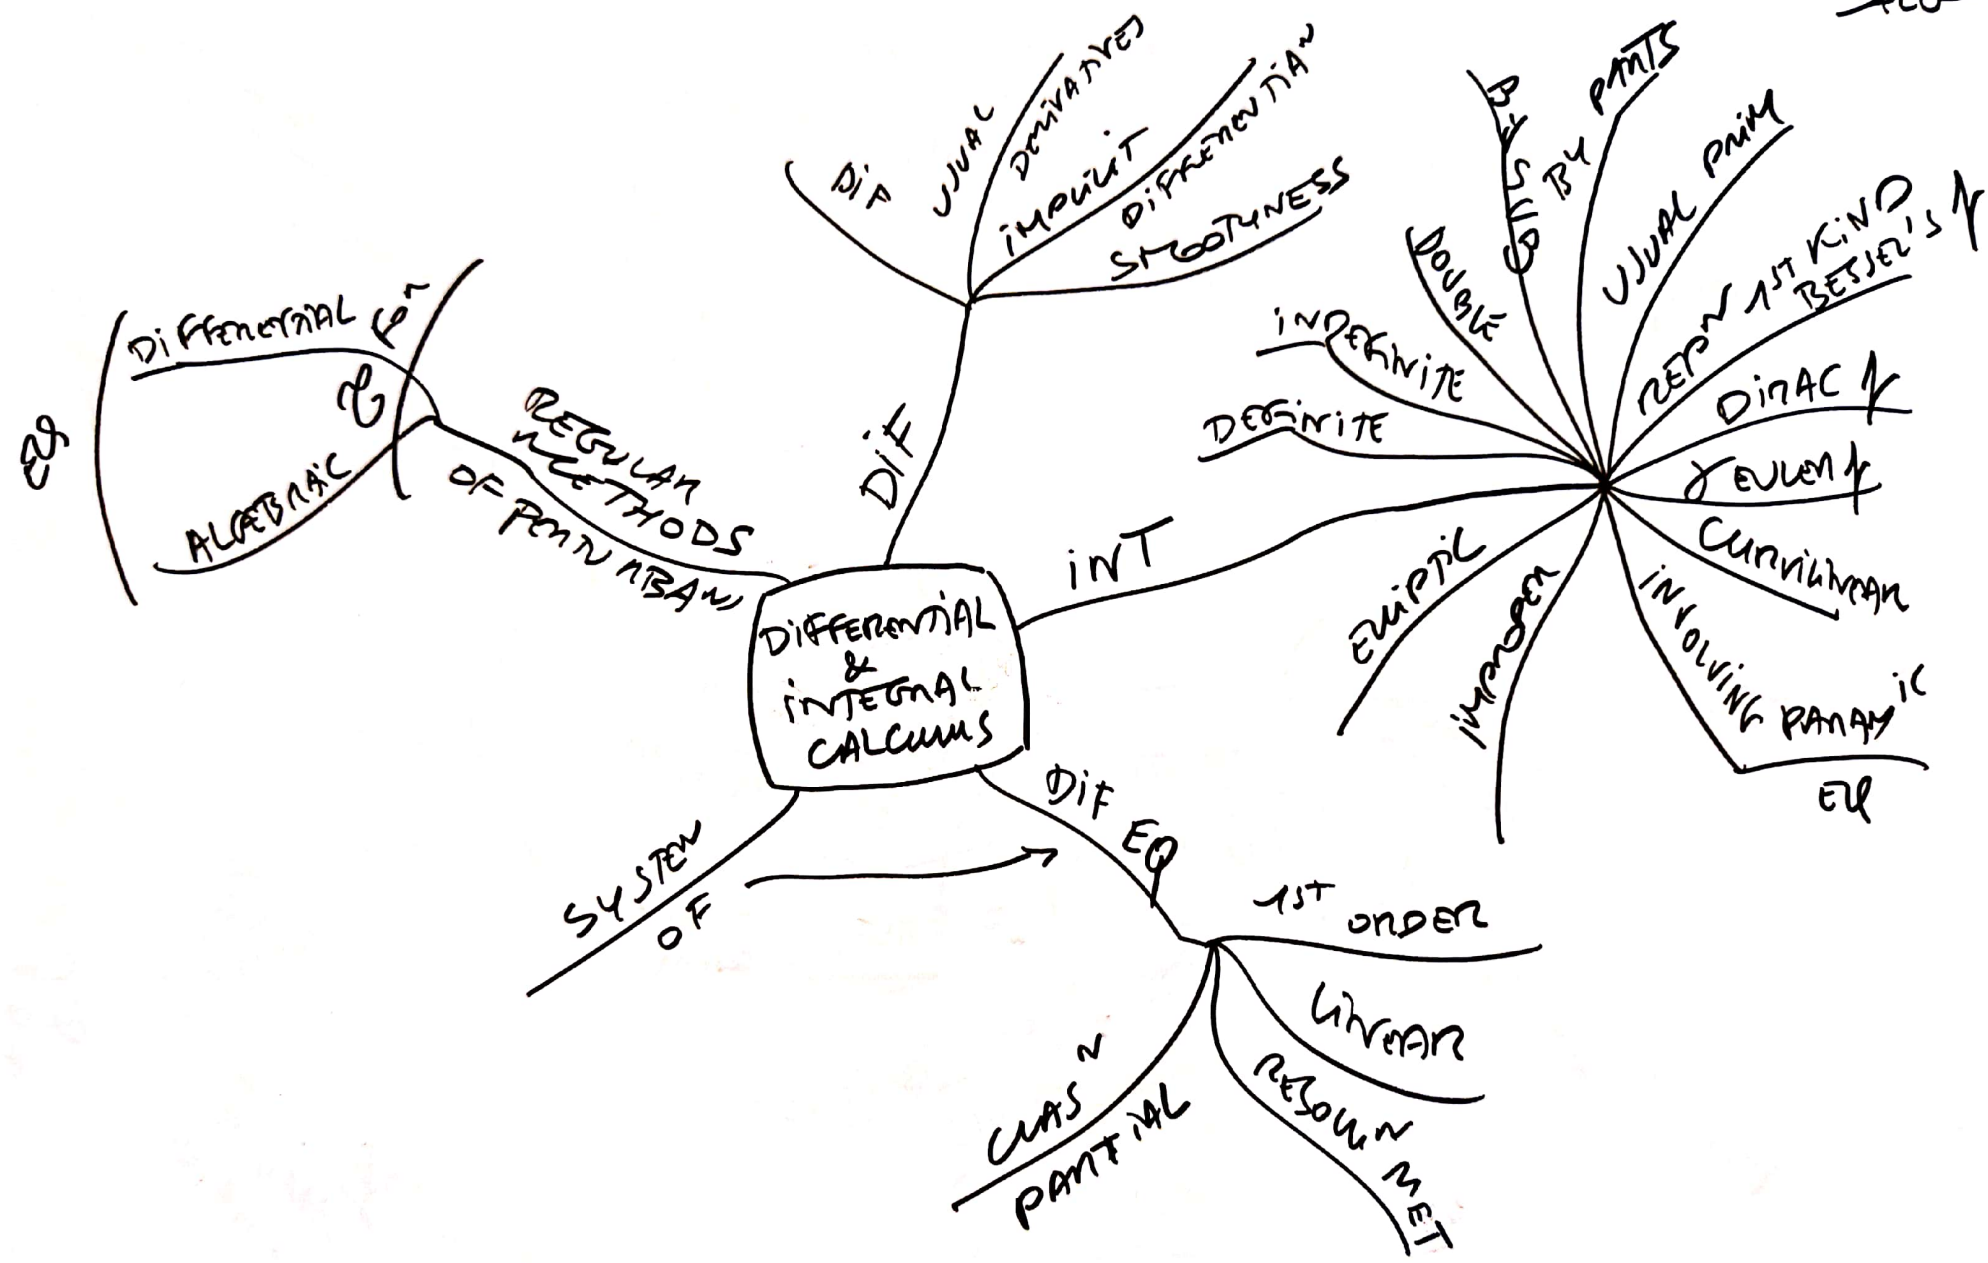 DIFFERENTIAL
&
INTEGRAL
CALCULUS
DIF
DIF
USUAL
DERIVATIVES
IMPLICIT
DIFFERENTIAN
SMOOTHNESS
INT
DEFINITE
INDEFINITE
DOUBLE
BY SUB
BY PARTS
USUAL PRIM
REPN 1ST KIND
BESSEL'S
DIRAC
γ EULER
CURVILINEAR
INVOLVING PARAM IC
EQ
IMPROPER
ELLIPTIC
DIF EQ
1ST ORDER
LINEAR
RESOLUN MET
CLAS N
PARTIAL
SYSTEM
OF
REGULAR
METHODS
OF PERTURBAN
DIFFERENTIAL
ALGEBRAIC
EQ